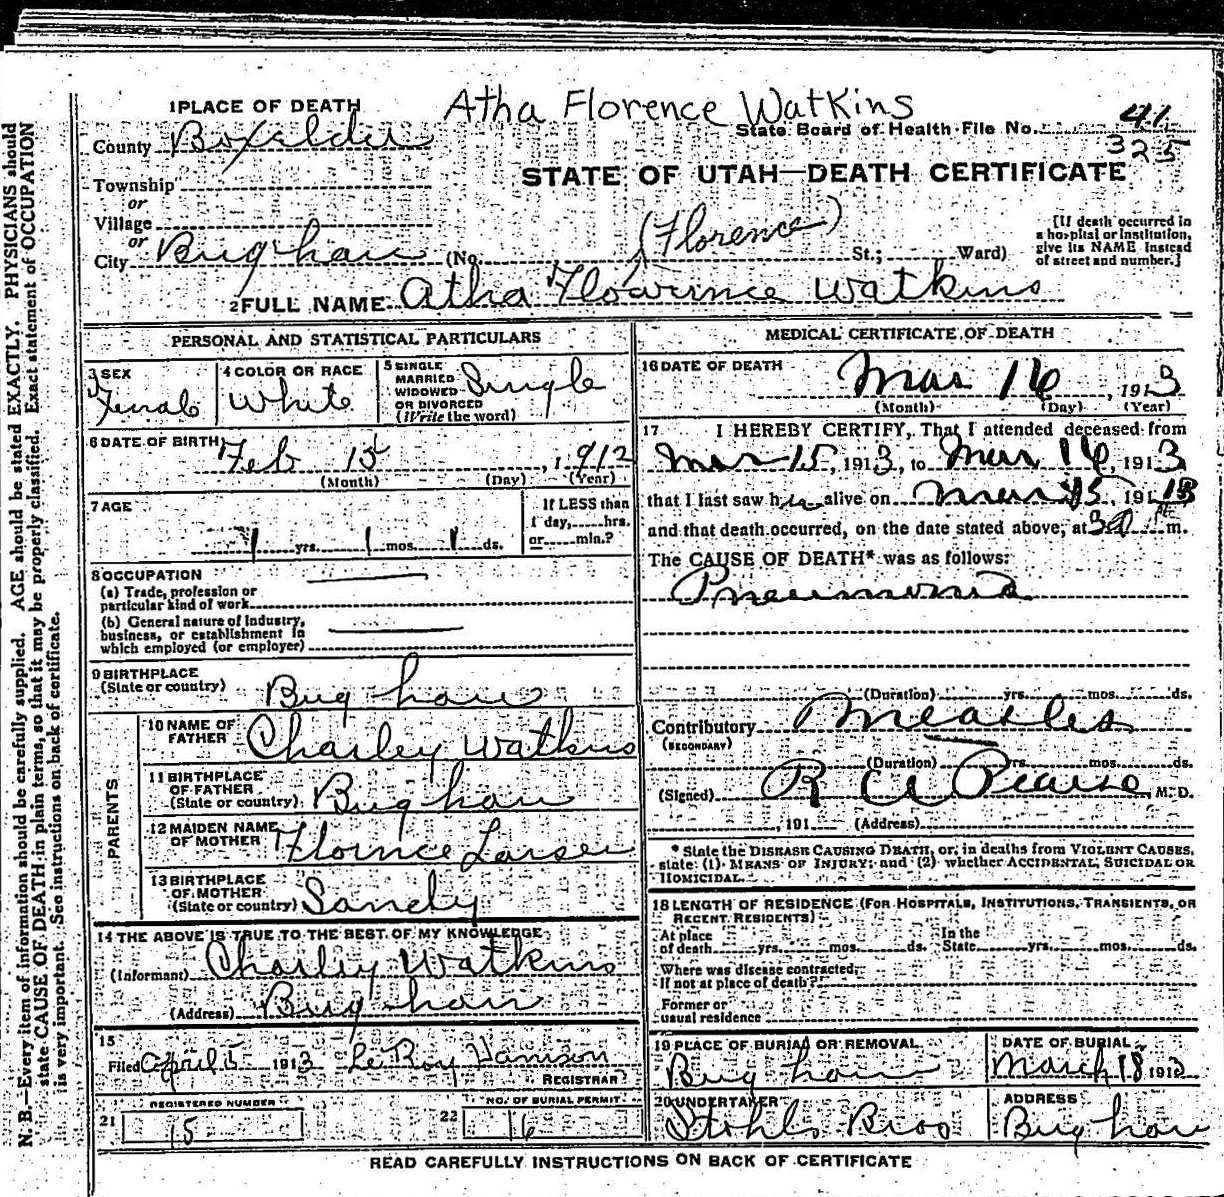 Atha Florence Watkins
1 PLACE OF DEATH
State Board of Health File No. 41
325
County Boxelder
STATE OF UTAH—DEATH CERTIFICATE
Township
or
Village
or
City Brigham (No. St.; Ward)
(Florence)
[If death occurred in a hospital or institution, give its NAME instead of street and number.]
2 FULL NAME Atha Flourince Watkins
PERSONAL AND STATISTICAL PARTICULARS
3 SEX
Female
4 COLOR OR RACE
White
5 SINGLE
MARRIED
WIDOWED
OR DIVORCED
(Write the word)
Single
6 DATE OF BIRTH
Feb 15, 1912
(Month) (Day) (Year)
7 AGE
1 yrs. 1 mos. 1 ds.
If LESS than
1 day, hrs.
or min.?
8 OCCUPATION
(a) Trade, profession or
particular kind of work
(b) General nature of Industry,
business, or establishment in
which employed (or employer)
9 BIRTHPLACE
(State or country)
Brigham
PARENTS
10 NAME OF
FATHER
Charley Watkins
11 BIRTHPLACE
OF FATHER
(State or country)
Brigham
12 MAIDEN NAME
OF MOTHER
Florince Larsen
13 BIRTHPLACE
OF MOTHER
(State or country)
Sandy
14 THE ABOVE IS TRUE TO THE BEST OF MY KNOWLEDGE
(Informant) Charley Watkins
(Address) Brigham
15
Filed April 5 1913 LeRoy Hamson
REGISTRAR
REGISTERED NUMBER
21 15
NO. OF BURIAL PERMIT
22 16
MEDICAL CERTIFICATE OF DEATH
16 DATE OF DEATH
Mar 16, 1913
(Month) (Day) (Year)
17 I HEREBY CERTIFY, That I attended deceased from
Mar 15, 1913, to Mar 16, 1913
that I last saw her alive on Mar 15, 1913
and that death occurred, on the date stated above, at m.
The CAUSE OF DEATH* was as follows:
Pneumonia
(Duration) yrs. mos. ds.
Contributory Measles
(SECONDARY)
(Duration) yrs. mos. ds.
(Signed) R A Pearse, M.D.
, 191 (Address)
* State the DISEASE CAUSING DEATH, or, in deaths from VIOLENT CAUSES,
state (1) MEANS OF INJURY; and (2) whether ACCIDENTAL, SUICIDAL OR
HOMICIDAL.
18 LENGTH OF RESIDENCE (FOR HOSPITALS, INSTITUTIONS, TRANSIENTS, OR
RECENT RESIDENTS)
At place In the
of death yrs. mos. ds. State yrs. mos. ds.
Where was disease contracted,
If not at place of death?
Former or
usual residence
19 PLACE OF BURIAL OR REMOVAL
Brigham
DATE OF BURIAL
March 18 1913
20 UNDERTAKER
Stohls Bros
ADDRESS
Brigham
READ CAREFULLY INSTRUCTIONS ON BACK OF CERTIFICATE
N. B.—Every item of information should be carefully supplied. AGE should be stated EXACTLY. PHYSICIANS should
state CAUSE OF DEATH in plain terms, so that it may be properly classified. Exact statement of OCCUPATION
is very important. See instructions on back of certificate.